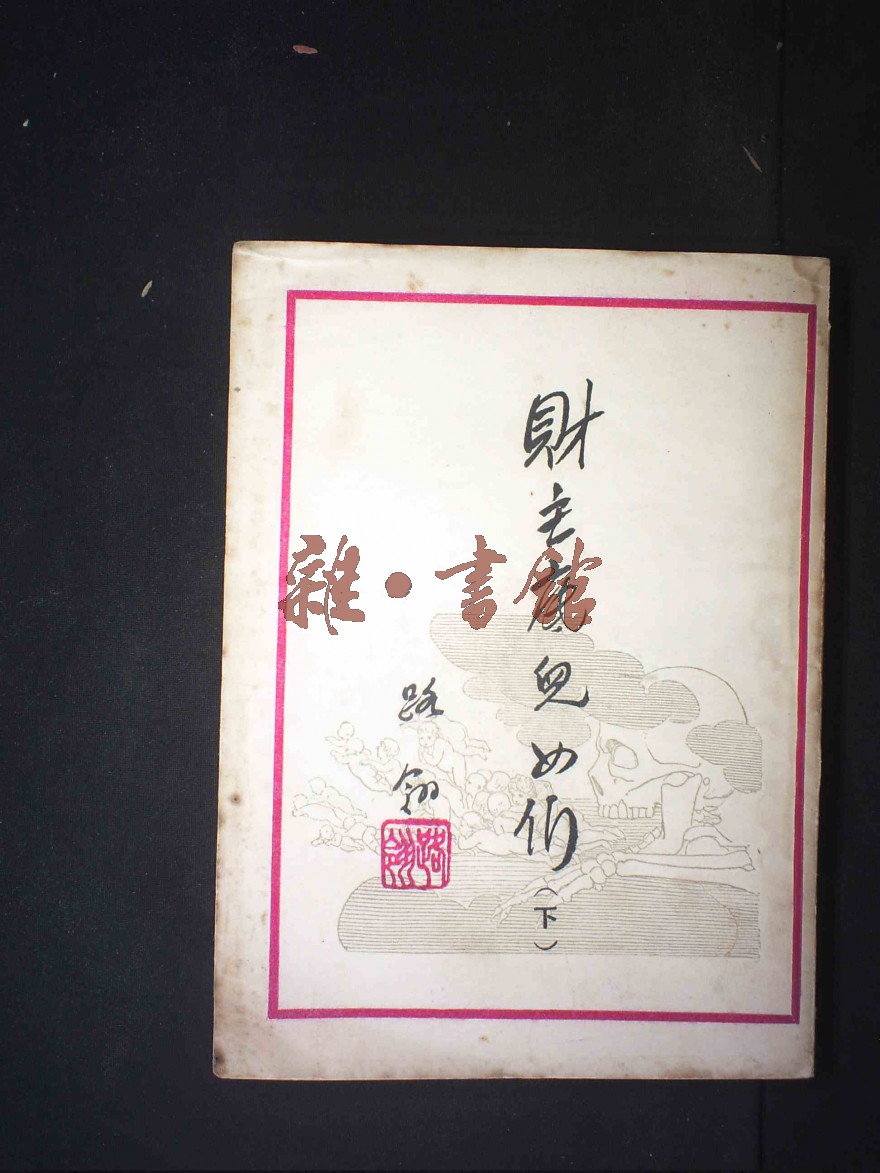 財主底兒女們
（下）
路翎
路翎
雜·書館